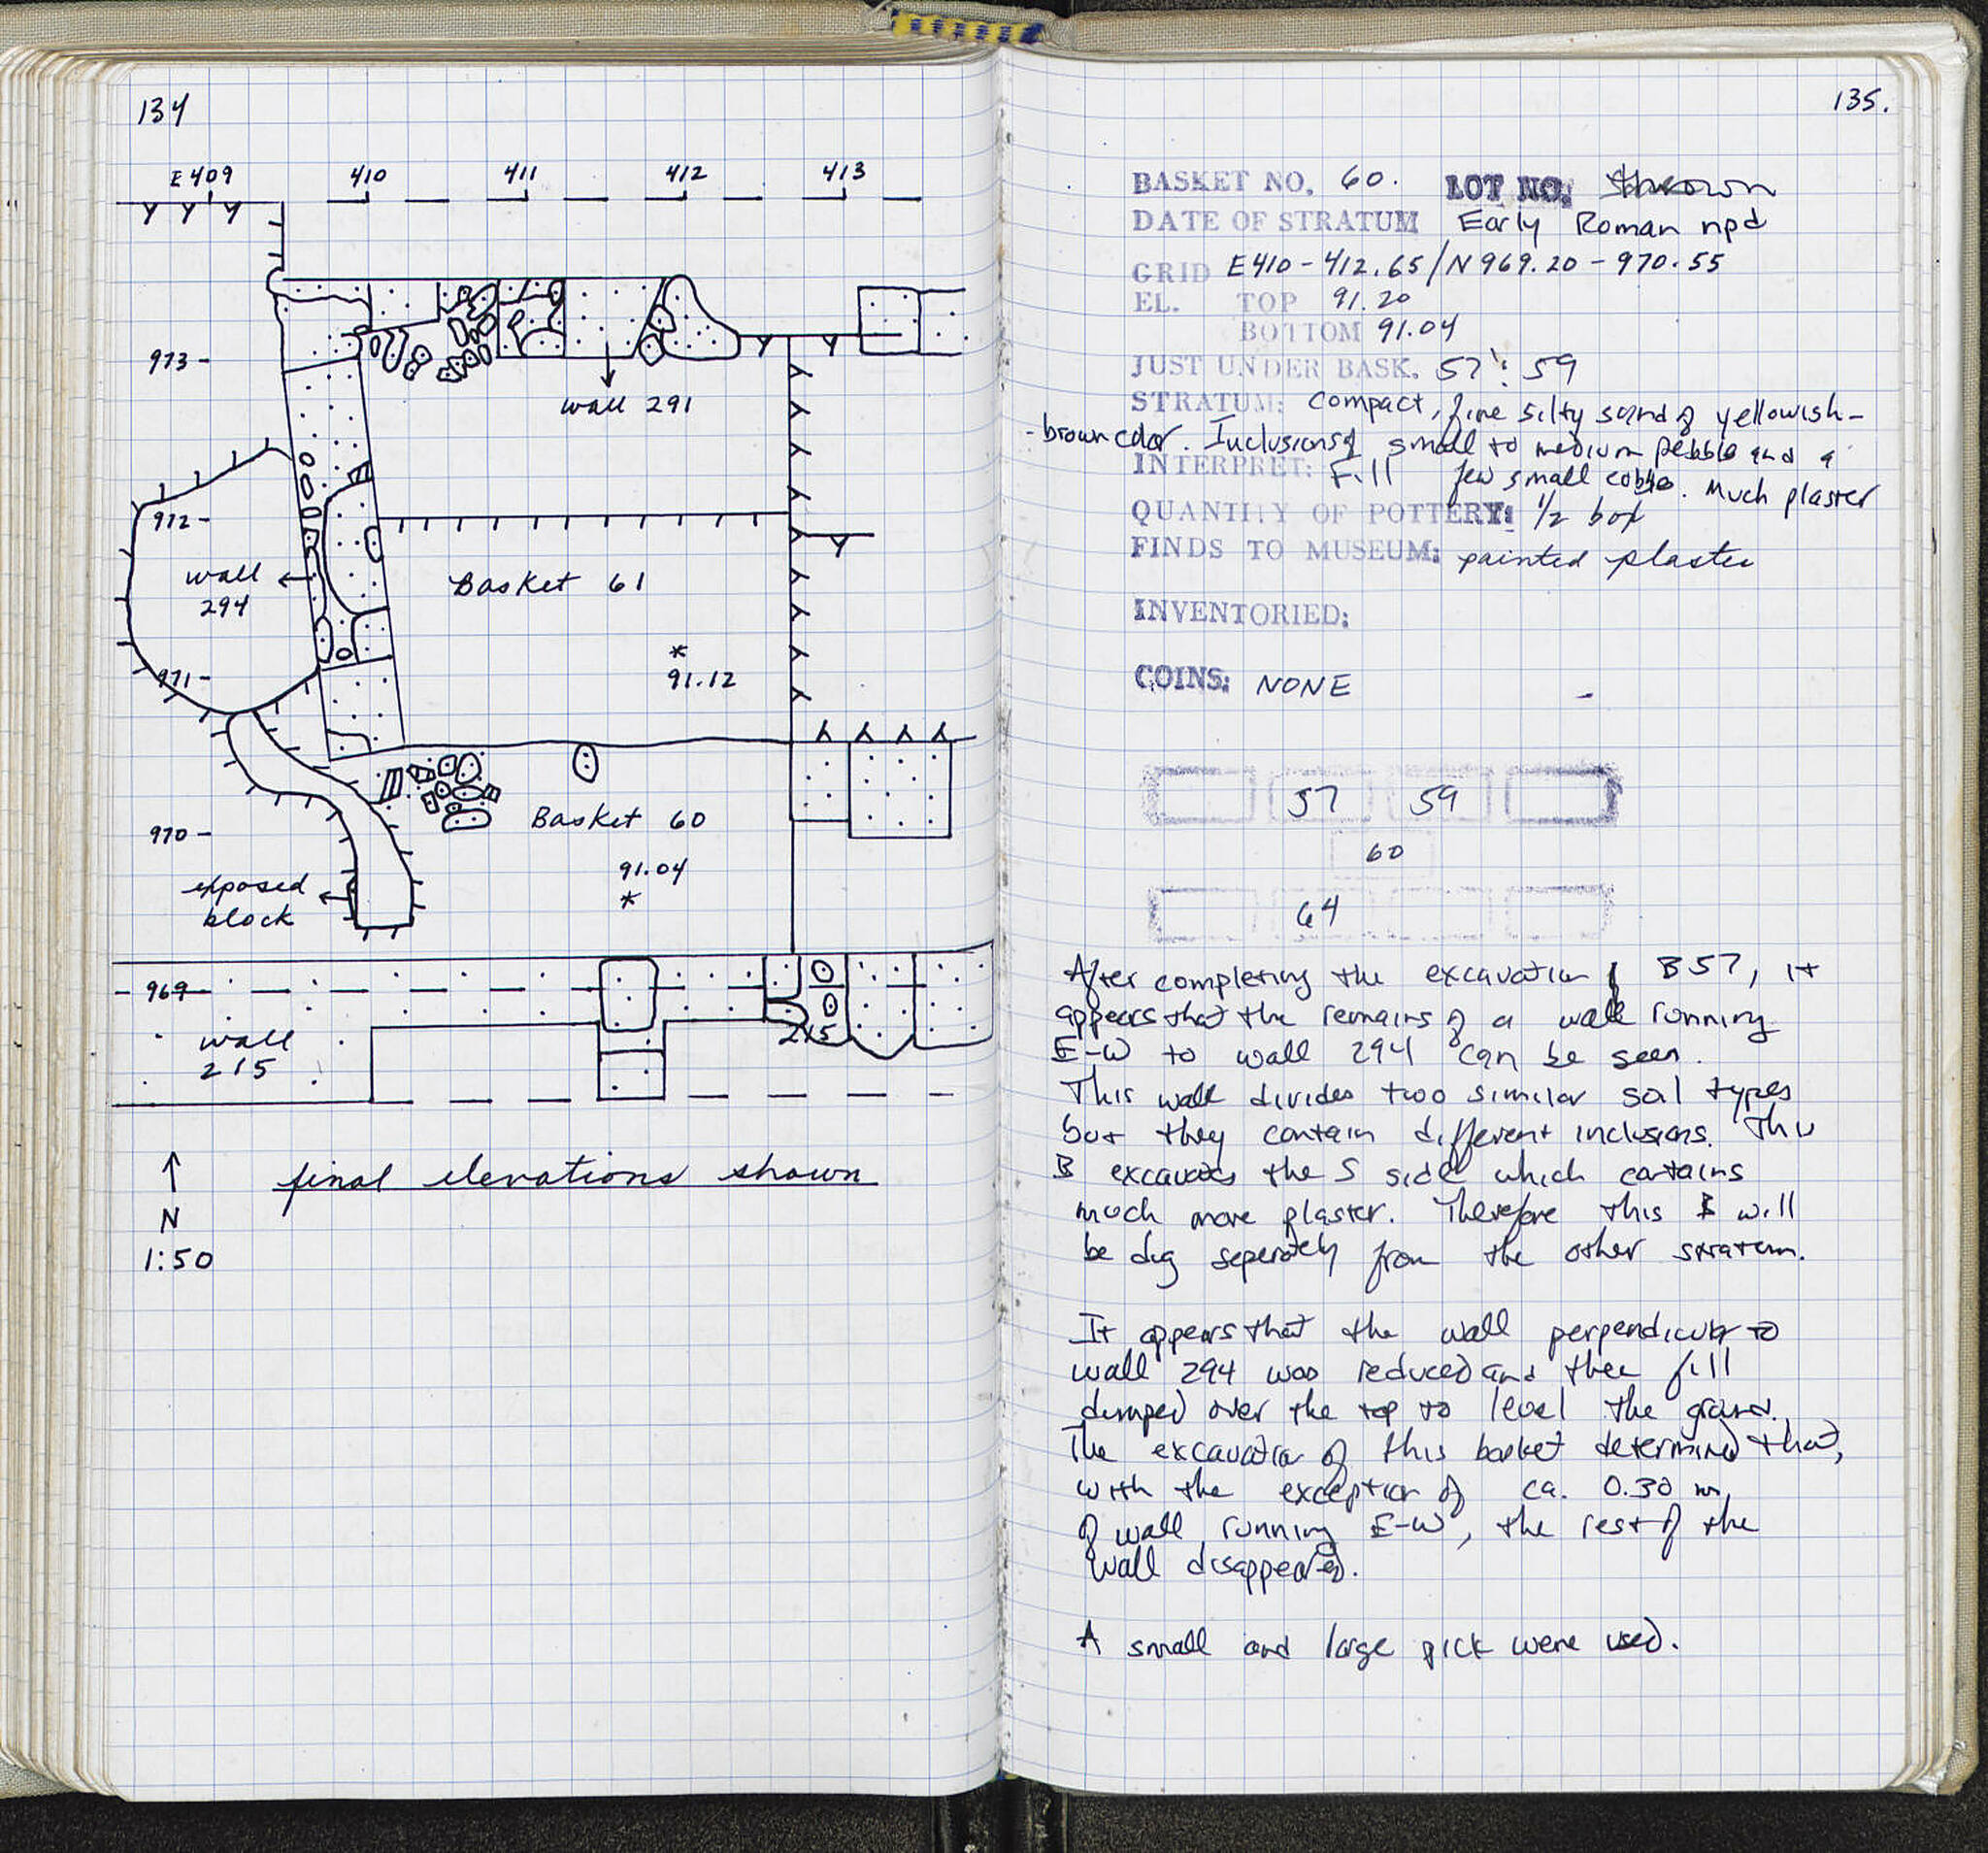 134
E409 410 411 412 413
973
wall 291
972
wall
294
Basket 61
*
91.12
971
Basket 60
970
91.04
*
exposed
block
969
215
wall
215
↑
N
1:50
final elevations shown
135.
BASKET NO. 60. LOT NO: thrown
DATE OF STRATUM Early Roman npd
GRID E410-412.65/N969.20-970.55
EL. TOP 91.20
BOTTOM 91.04
JUST UNDER BASK. 57; 59
STRATUM: Compact, fine silty sand of yellowish-
-brown color. Inclusions of small to medium pebble and a
INTERPRET: Fill few small cobble. Much plaster
QUANTITY OF POTTERY: 1/2 box
FINDS TO MUSEUM: painted plaster
INVENTORIED:
COINS: NONE
57 59
60
64
After completing the excavation of B57, it
appears that the remains of a wall running
E-W to wall 294 can be seen.
This wall divides two similar soil types
but they contain different inclusions. This
B excavates the S side which contains
much more plaster. Therefore this B will
be dug seperately from the other stratum.
It appears that the wall perpendicular to
wall 294 was reduced and then fill
dumped over the top to level the ground.
The excavation of this basket determined that,
with the exception of ca. 0.30 m
of wall running E-W, the rest of the
wall disappeared.
A small and large pick were used.